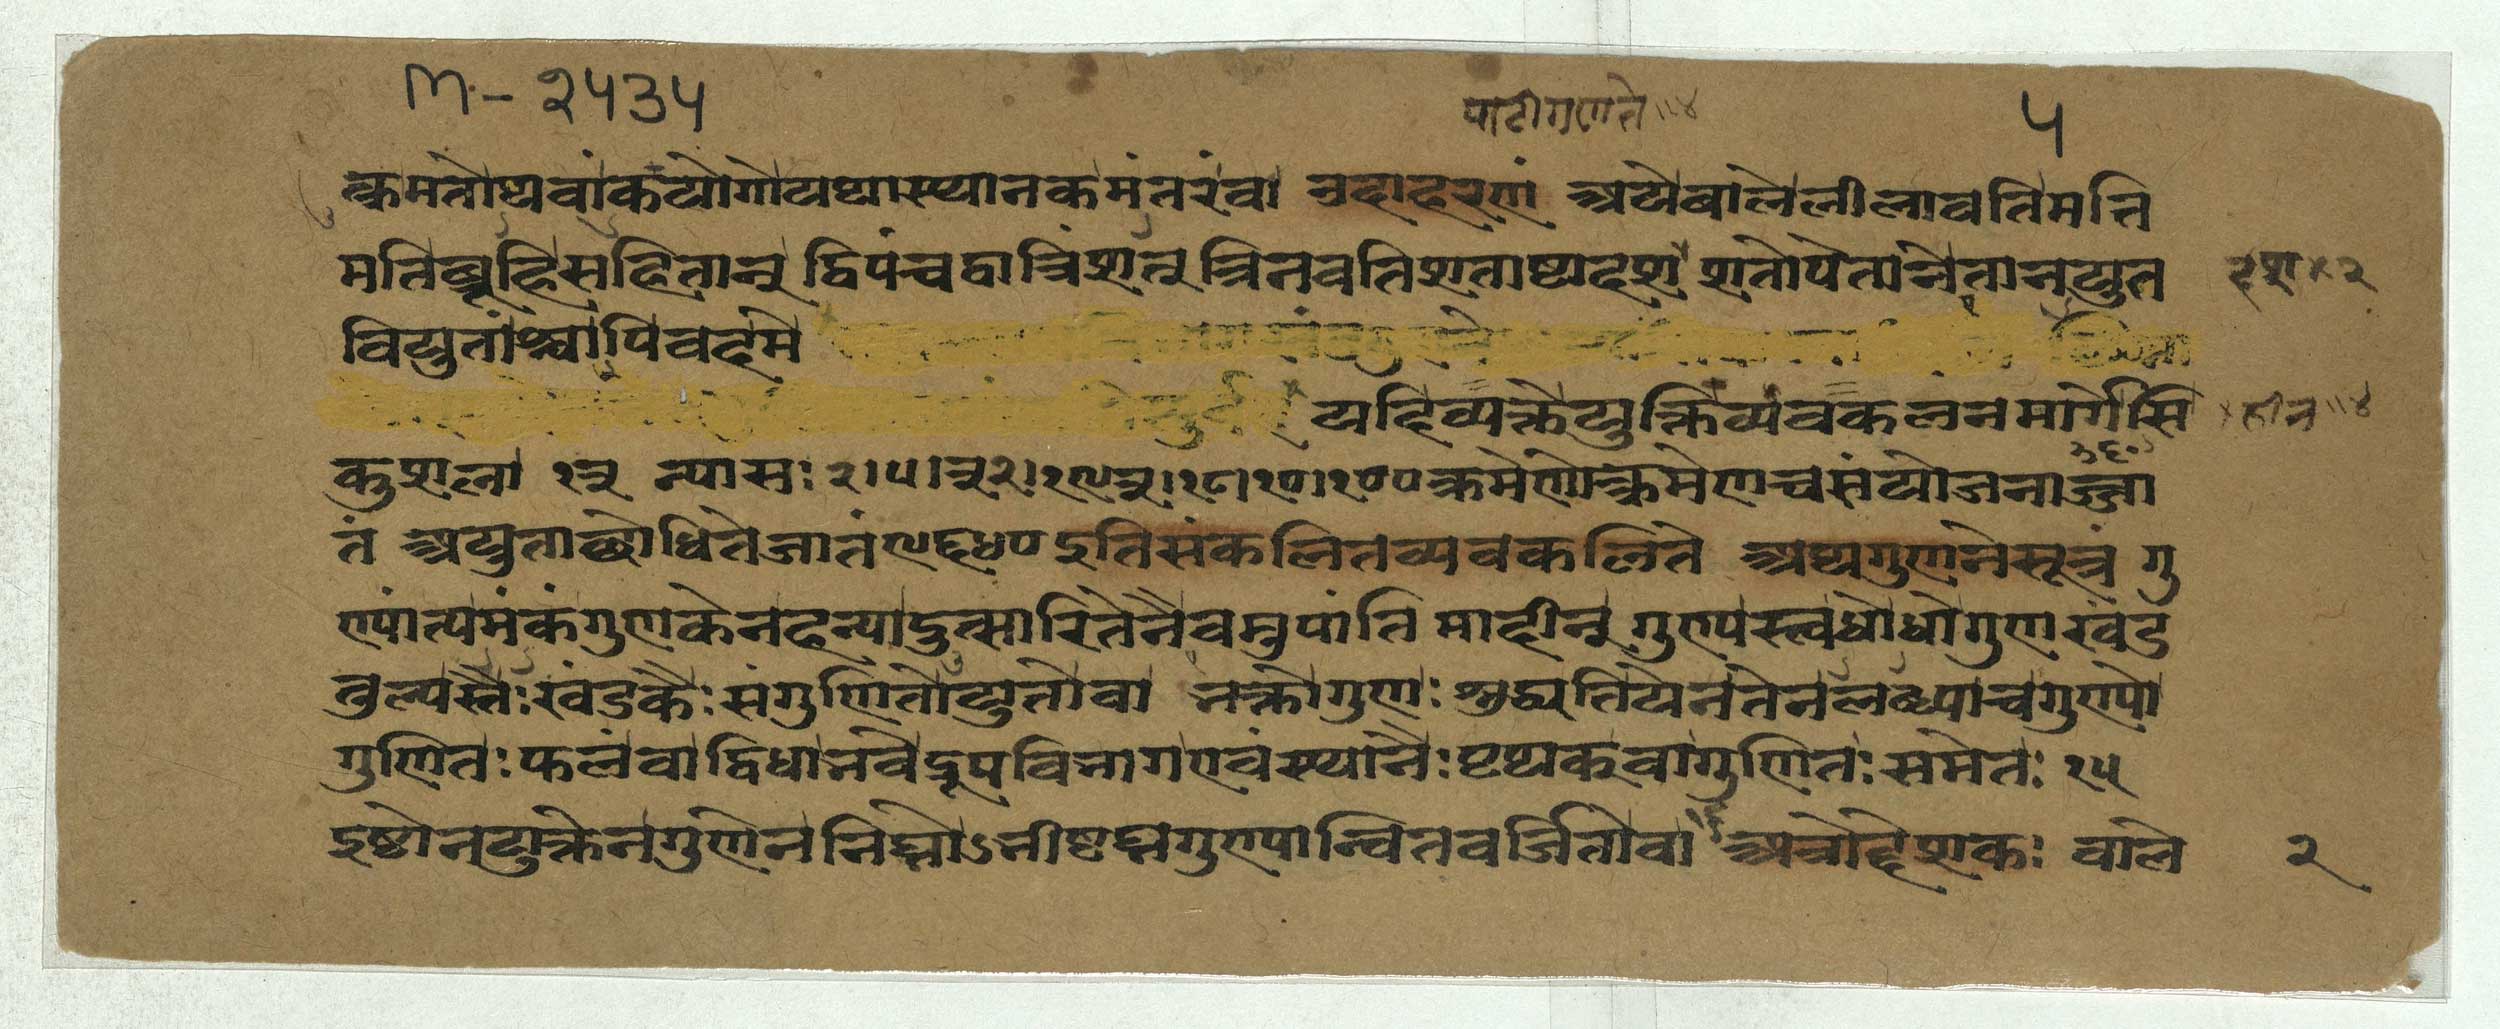 M.- २५३५
पाटीगणिते ॥४
५
त्क्रमतोथवांकयोगोयथास्थानकमंतरंवा उदाहरणं अयेबालेलीलावतिमति
मतिब्रूहिसहितान् द्विपंचद्वात्रिंशत् त्रिनवतिशताष्टादश शतोपेतानेतानयुत
दश × २
वियुतांश्चापिवदमे
यदिव्यक्तेयुक्तिव्यवकलनमार्गेसि
कुशला १३ न्यासः २।५।३२।१९३।१८।१०।१०० क्रमेणोत्क्रमेणचसंयोजनाज्जा
३६०
तं अयुताच्छोधितेजातं ९६४० इतिसंकलितव्यवकलिते अथगुणनेसूत्रं गु
ण्यांत्यमंकंगुणकेनहन्यादुत्सारितेनैवमुपांति मादीन् गुण्यस्त्वधोधोगुणखंड
तुल्यस्तैः खंडकैः संगुणितोयुतोवा भक्तोगुणः शुद्ध्यतियेनतेनलब्ध्याचगुण्यो
गुणितः फलंवा द्विधाभवेद्रूपविभागएवंस्थानैः पृथक्वागुणितः समेतः १५
इष्टोनयुक्तेनगुणेननिघ्नोऽभीष्टघ्नगुण्यान्वितवर्जितोवा १६ अत्रोद्देशकः बाले
२